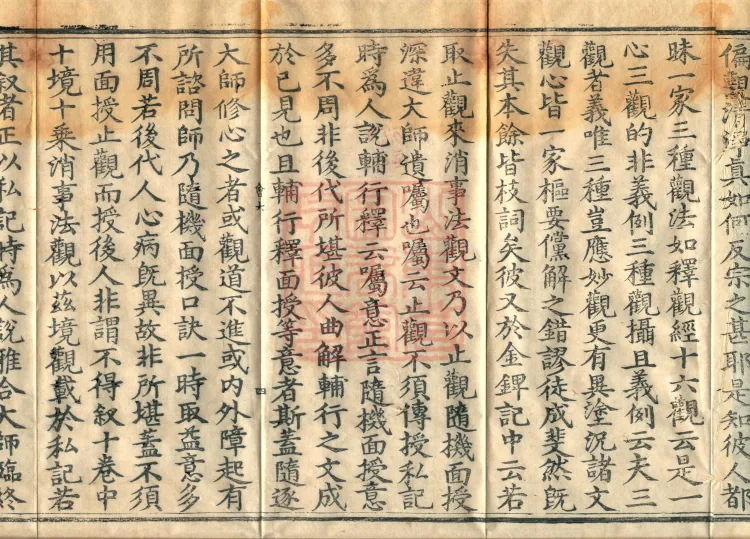 偏觀清淨真如何反宗之甚耶是知彼人都
昧一家三種觀法如釋觀經十六觀云是一
心三觀的非義例三種觀攝且義例云夫三
觀者義唯三種豈應妙觀更有異塗況諸文
觀心皆一家樞要儻解之錯謬徒成斐然旣
失其本餘皆枝詞矣彼又於金錍記中云若
取止觀來消事法觀文乃以止觀隨機面授
深違大師遺囑也囑云止觀不須傳授私記
時爲人說輔行釋云囑意正言隨機面授意
多不周非後代所堪彼人曲解輔行之文成
於己見也且輔行釋面授等意者斯蓋隨逐
大師修心之者或觀道不進或内外障起有
所諮問師乃隨機面授口訣一時取益意多
不周若後代人心病旣異故非所堪蓋不須
用面授止觀而授後人非謂不得叙十卷中
十境十乘消事法觀以茲境觀載於私記若
其叙者正以私記時爲人說雅合大師臨終
四